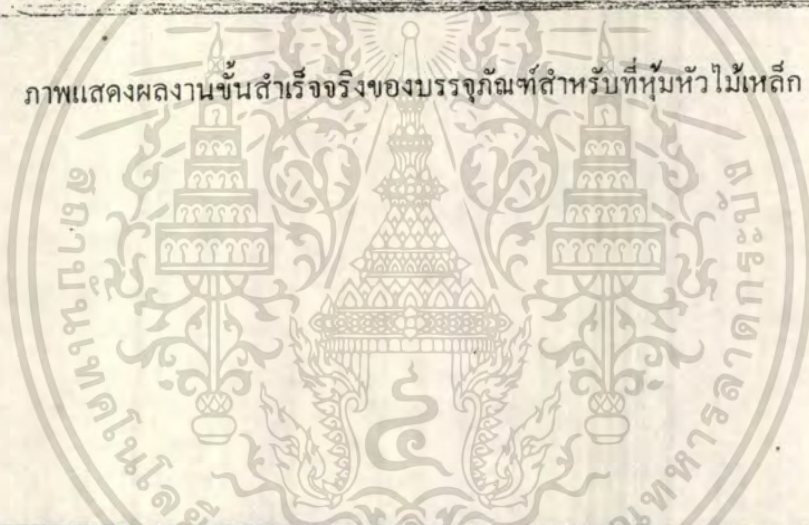 ภาพแสดงผลงานขั้นสำเร็จจริงของบรรจุภัณฑ์สำหรับที่หุ้มหัวไม้เหล็ก
สถาบันเทคโนโลยี
ทหารลาดกระบัง